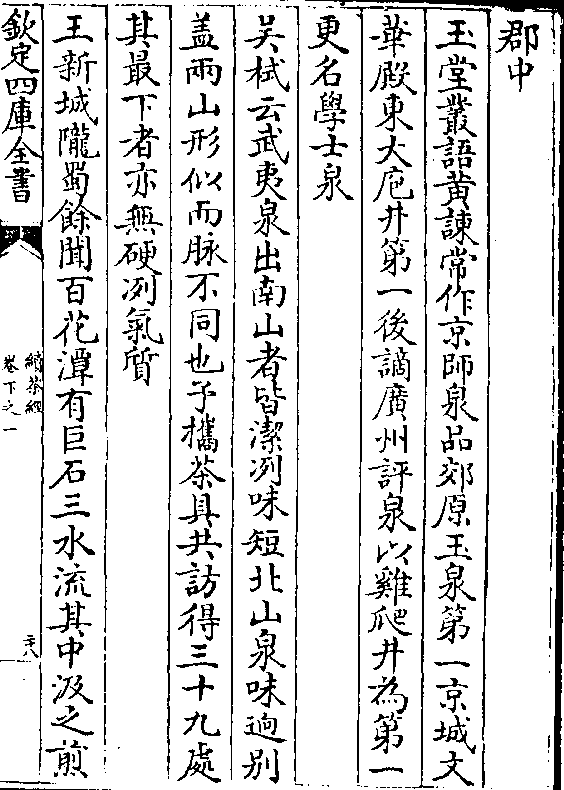 郡中
玉堂叢語黄諫常作京師泉品郊原玉泉第一京城文
華殿東大庖井第一後謫廣州評泉以雞爬井為第一
更名學士泉
吴栻云武夷泉出南山者皆潔冽味短北山泉味逈别
盖兩山形似而脉不同也予攜茶具共訪得三十九處
其最下者亦無硬冽氣质
王新城隴蜀餘聞百花潭有巨石三水流其中汲之煎
欽定四庫全書
續茶經
卷下之一
二八